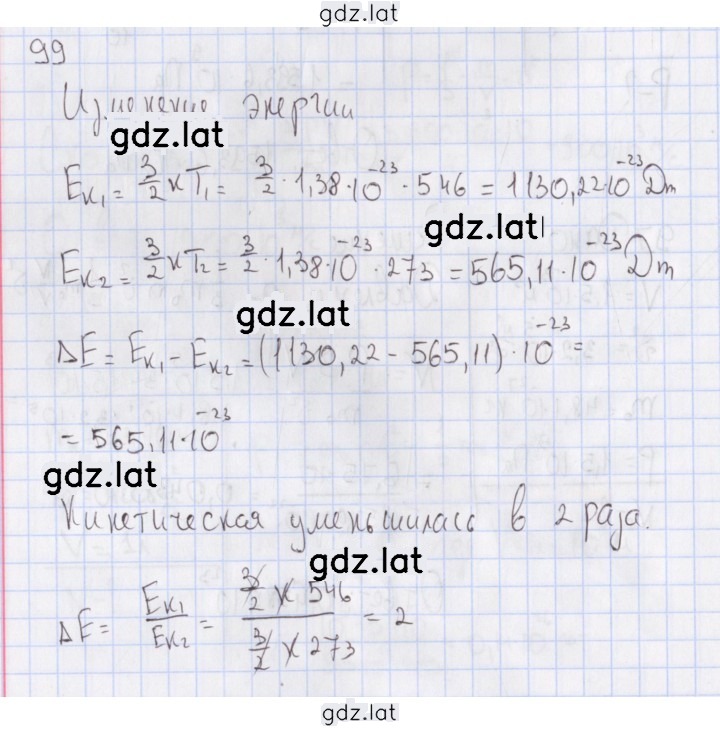 gdz.lat
99
Изменение энергии
gdz.lat
Eк₁ = 3/2 кT₁ = 3/2 · 1,38 · 10⁻²³ · 546 = 1130,22 · 10⁻²³ Дж
gdz.lat
Eк₂ = 3/2 кT₂ = 3/2 · 1,38 · 10⁻²³ · 273 = 565,11 · 10⁻²³ Дж
gdz.lat
ΔE = Eк₁ - Eк₂ = (1130,22 - 565,11) · 10⁻²³ =
= 565,11 · 10⁻²³
gdz.lat
Кинетическая уменьшилась в 2 раза.
gdz.lat
ΔE = Eк₁/Eк₂ = (3/2 к 546)/(3/2 к 273) = 2
gdz.lat